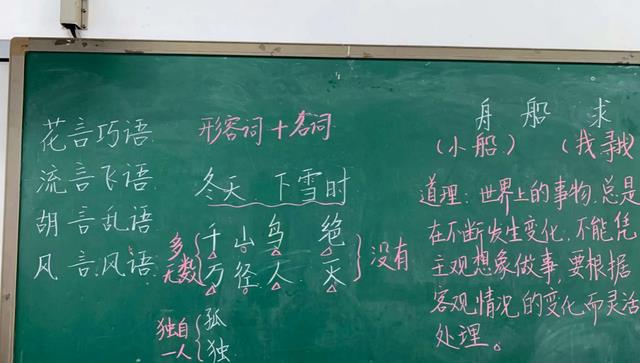 花言巧语
流言飞语
胡言乱语
风言风语
形容词+名词
冬天 下雪时
多 千山鸟 绝
无数 万径人 灭
没有
独自 孤
一人 独
舟 船 求
(小船) (找寻
道理:世界上的事物,总是
在不断发生变化,不能凭
主观想象做事,要根据
客观情况的变化而灵活
处理。